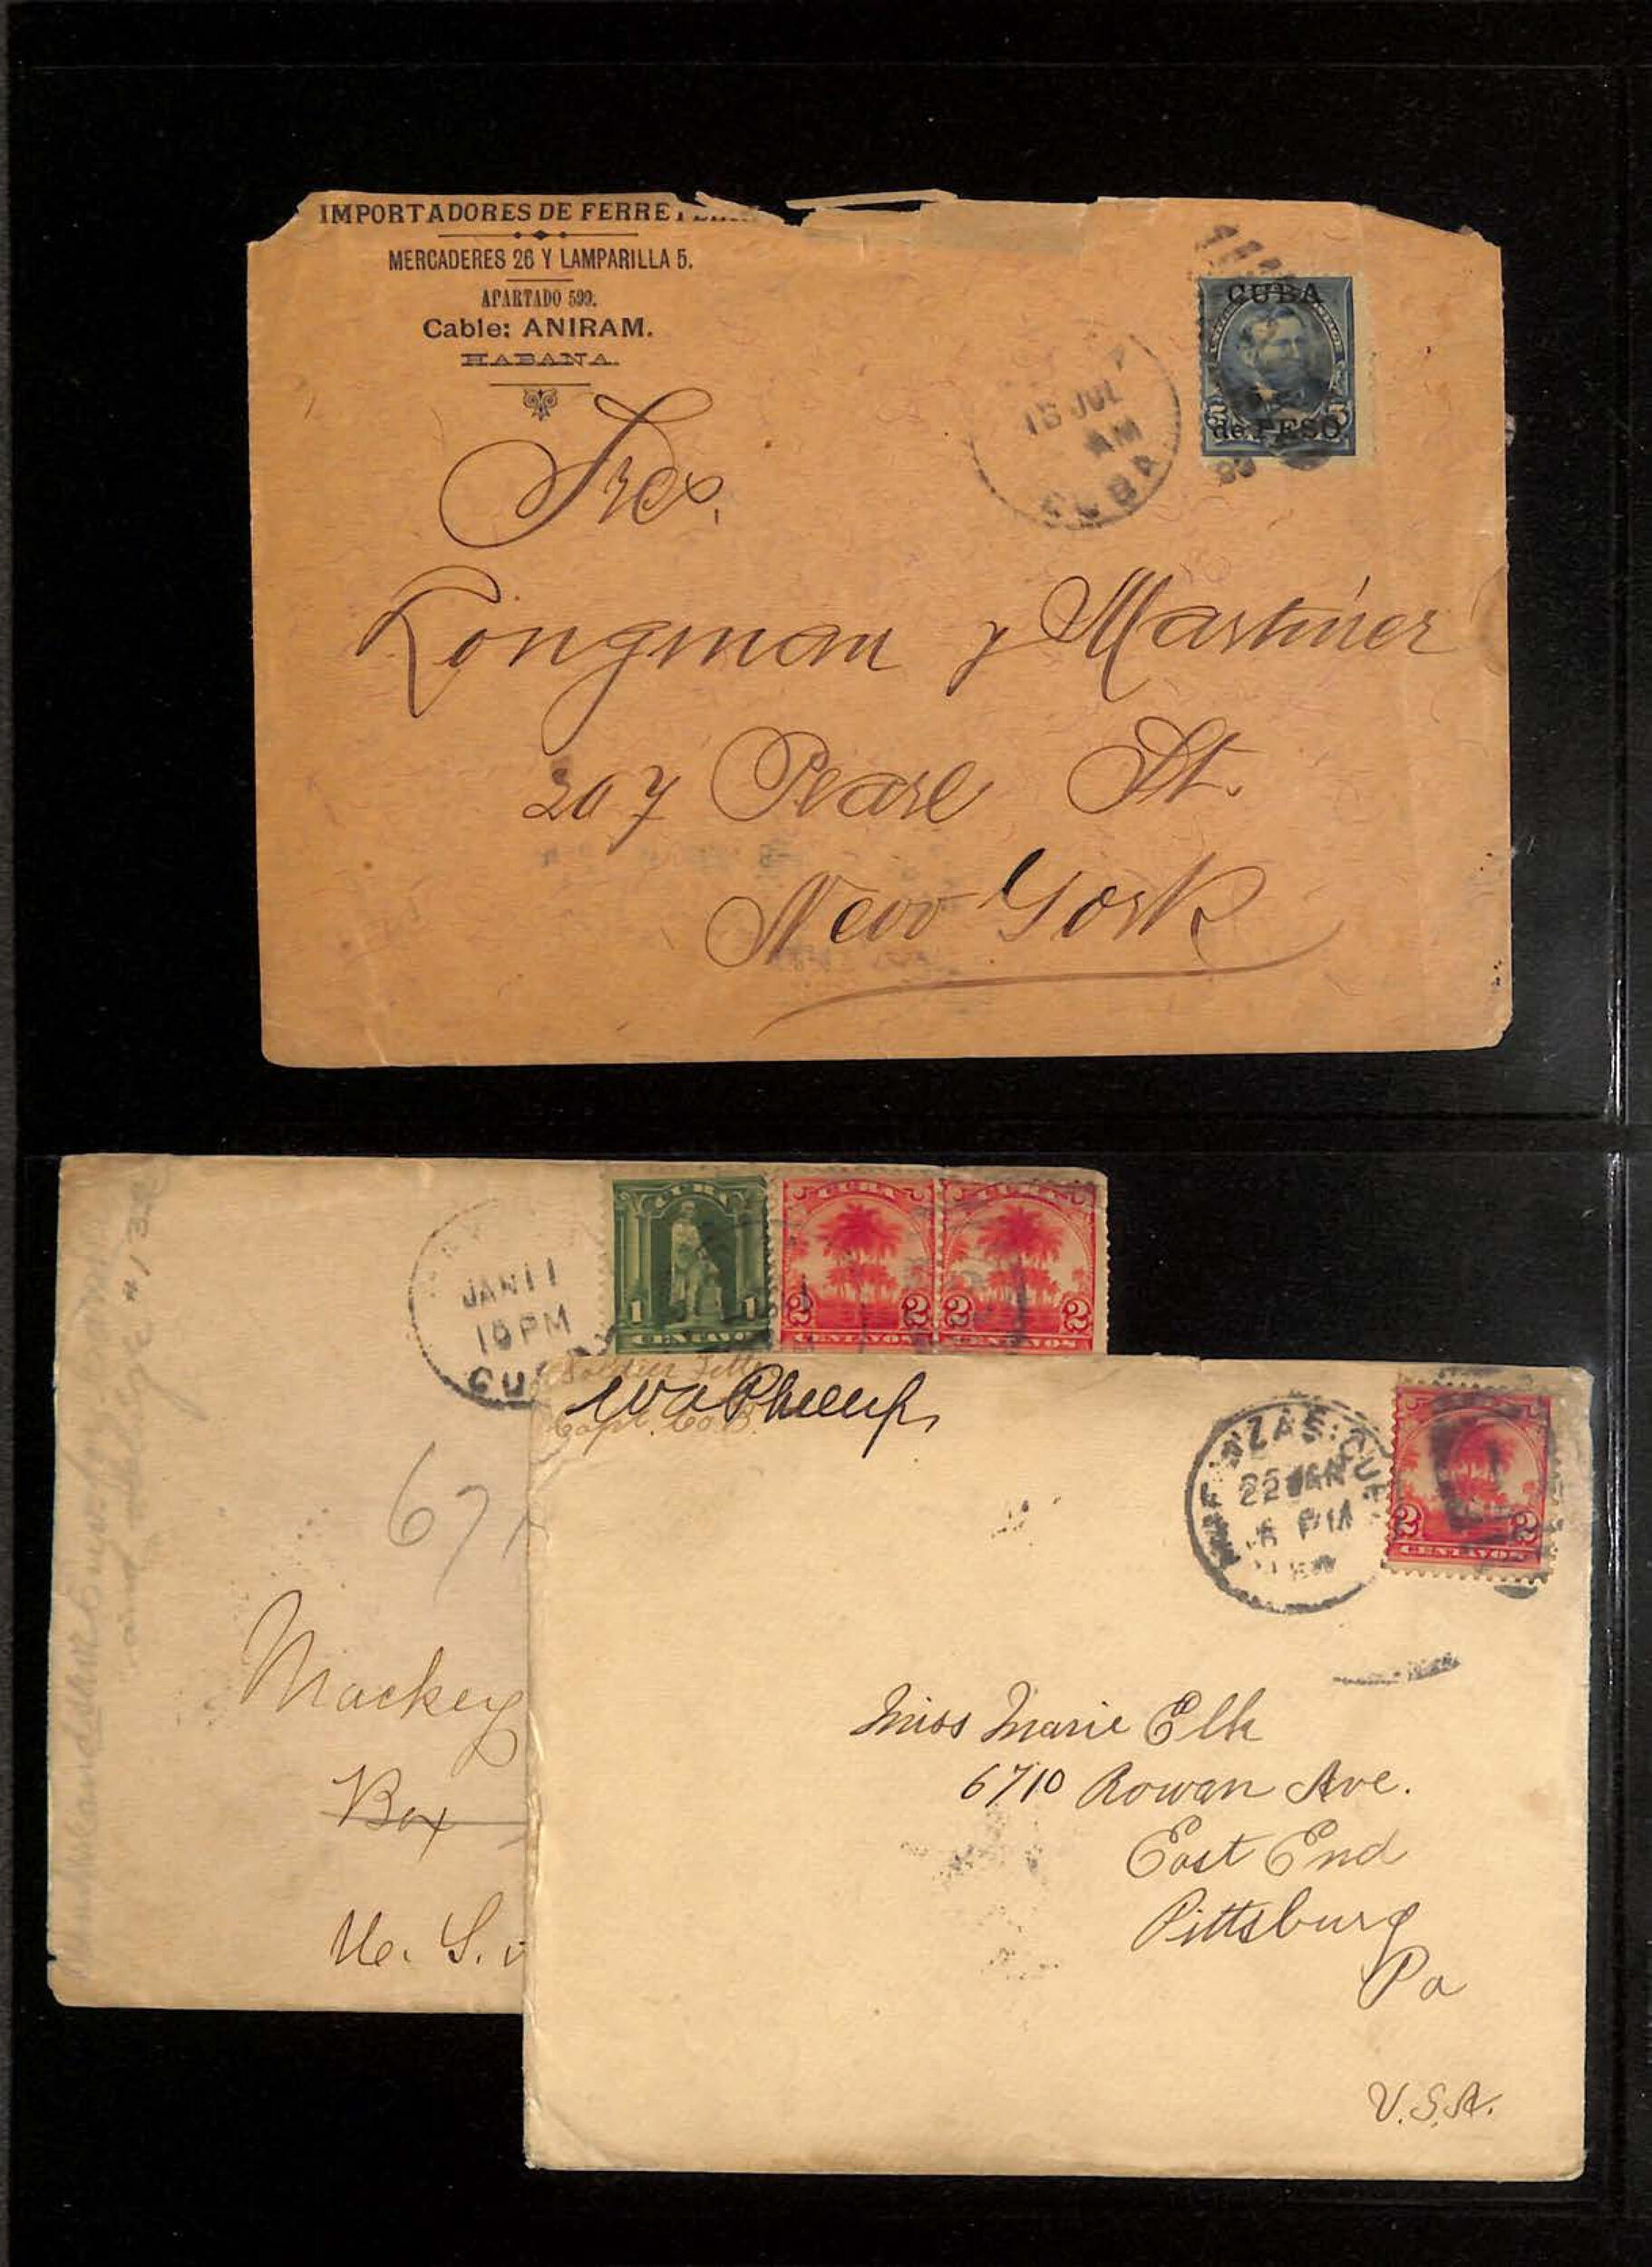 IMPORTADORES DE FERRE
MERCADERES 26 Y LAMPARILLA 5.
APARTADO 599.
Cable: ANIRAM.
HABANA.
CUBA
5 5
de PESO
15 JUL
AM
CUBA
99
Sres.
Longman y Martinez
207 Pearl St.
New York
JAN 11
10 PM
CU
CUBA
1 1
CENTAVO
CUBA
2 2
CENTAVOS
CUBA
2 2
CENTAVOS
Mackey
Box
U. S.
Soldier's
Capt. Co. B.
22 JAN
6 PM
2 2
CENTAVOS
Miss Marie Elk
6710 Rowan Ave.
East End
Pittsburg
Pa
U.S.A.